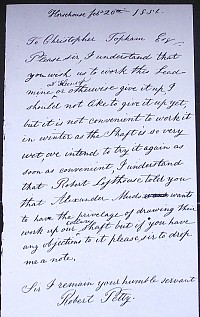 Horsehouse Feb 26th 1851.
To Christopher Topham Esq
Please sir, I understand that
you wish us to work this Lead-
at Haw
mine or otherwise give it up, I
should not like to give it up yet,
but it is not convenient to work it
in winter as the Shaft is so very
wet we intend to try it again as
soon as convenient, I understand
that Robert Lofthouse toler you
that Alexander wants
to have the privelage of drawing their
work up our Shaft but if you have
any objections to it please sir to drop
me a note,
Sir I remain your humble servant
Robert Petty.